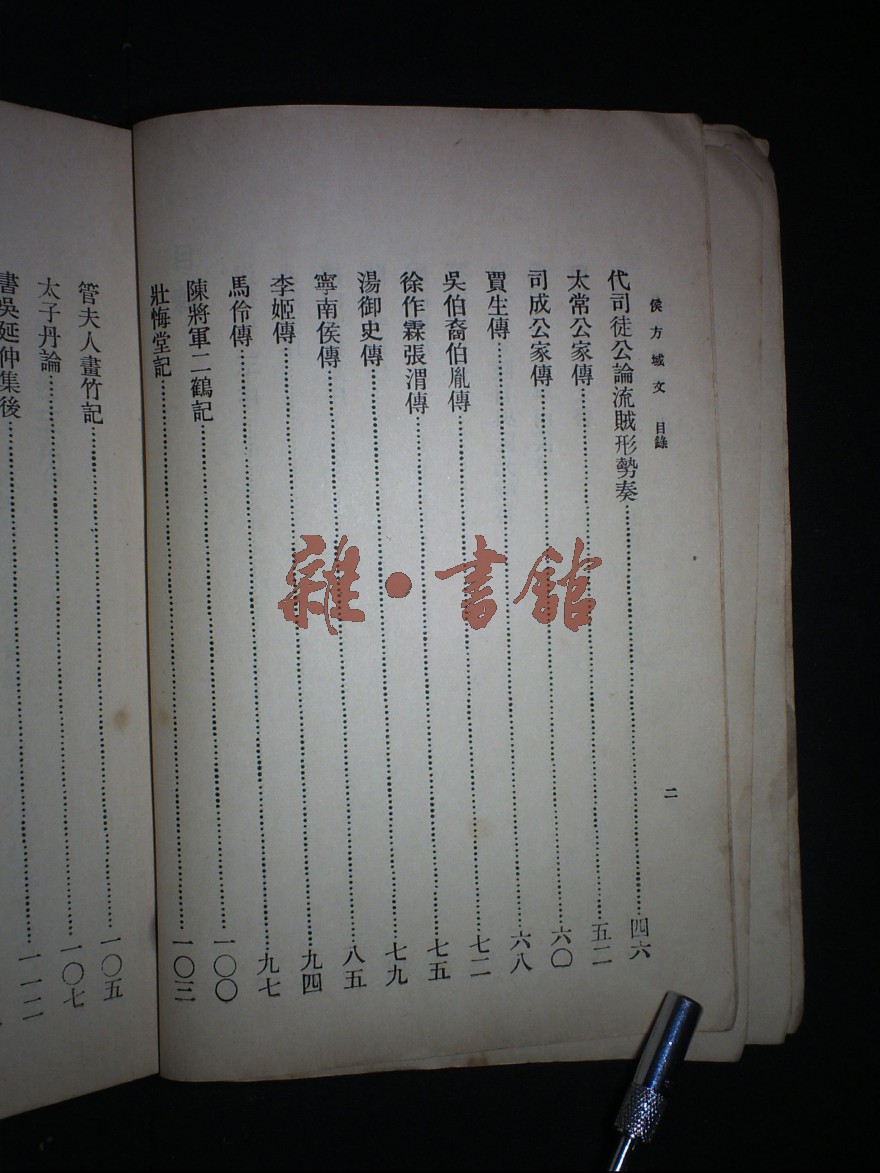 侯方域文 目錄 二
代司徒公論流賊形勢奏……四六
太常公家傳……五二
司成公家傳……六〇
賈生傳……六八
吳伯裔伯胤傳……七二
徐作霖張渭傳……七五
湯御史傳……七九
寧南侯傳……八五
李姬傳……九四
馬伶傳……九七
陳將軍二鶴記……一〇〇
壯悔堂記……一〇三
管夫人畫竹記……一〇五
太子丹論……一〇七
書吳延仲集後……一一二
雜·書館